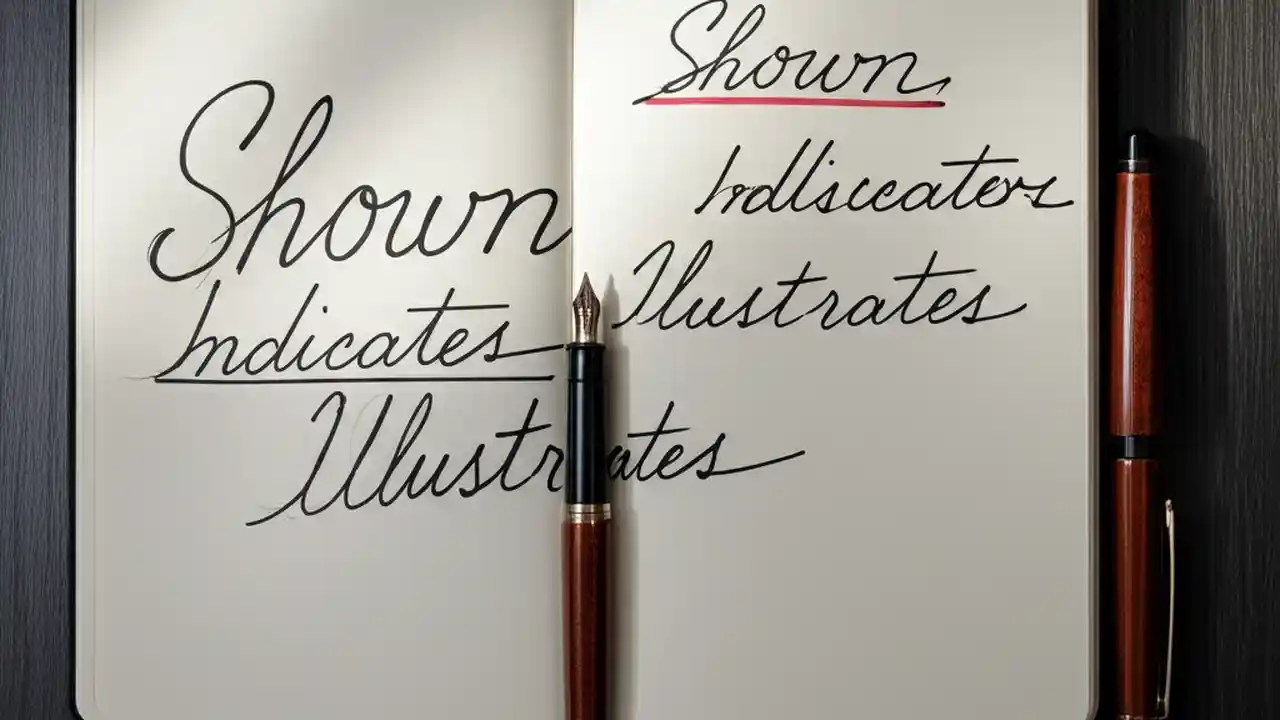 Shown
Indicates
Illustrates
Shown
Indliscators
Ilustrates